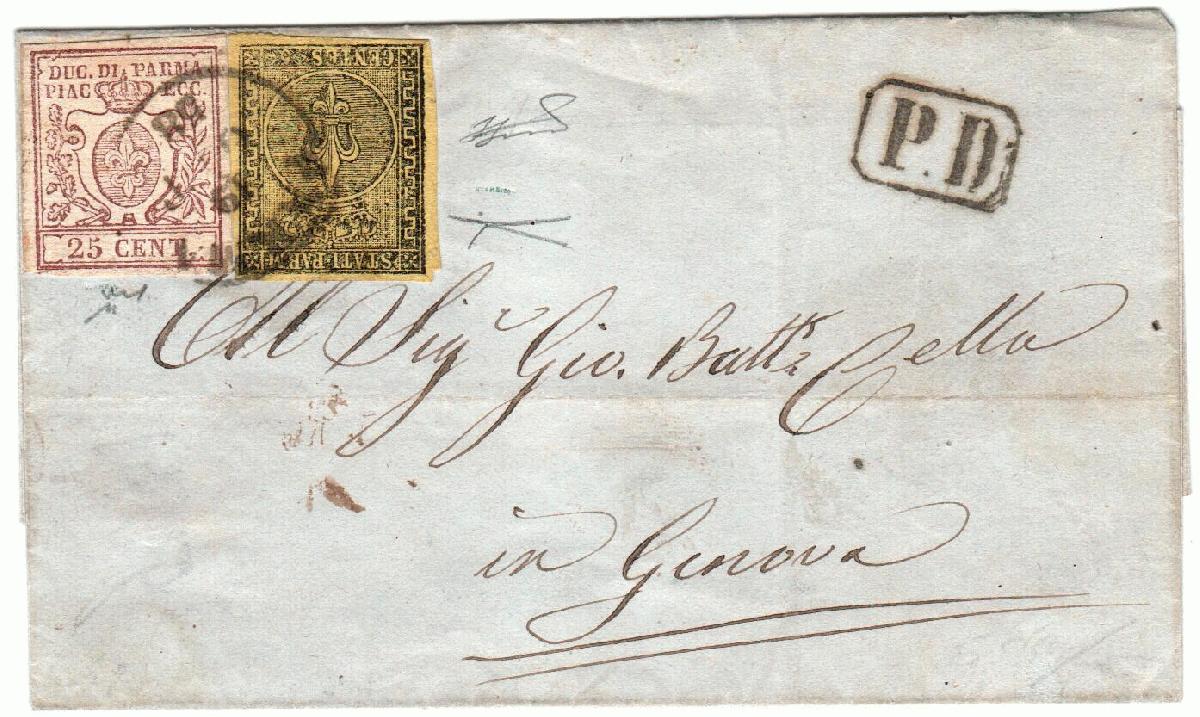 DUC. DI PARMA
PIAC ECC.
25 CENT.
CENTES
STATI PARM
P.D
Al Sig.r Gio. Batt.a Cella
in Genova